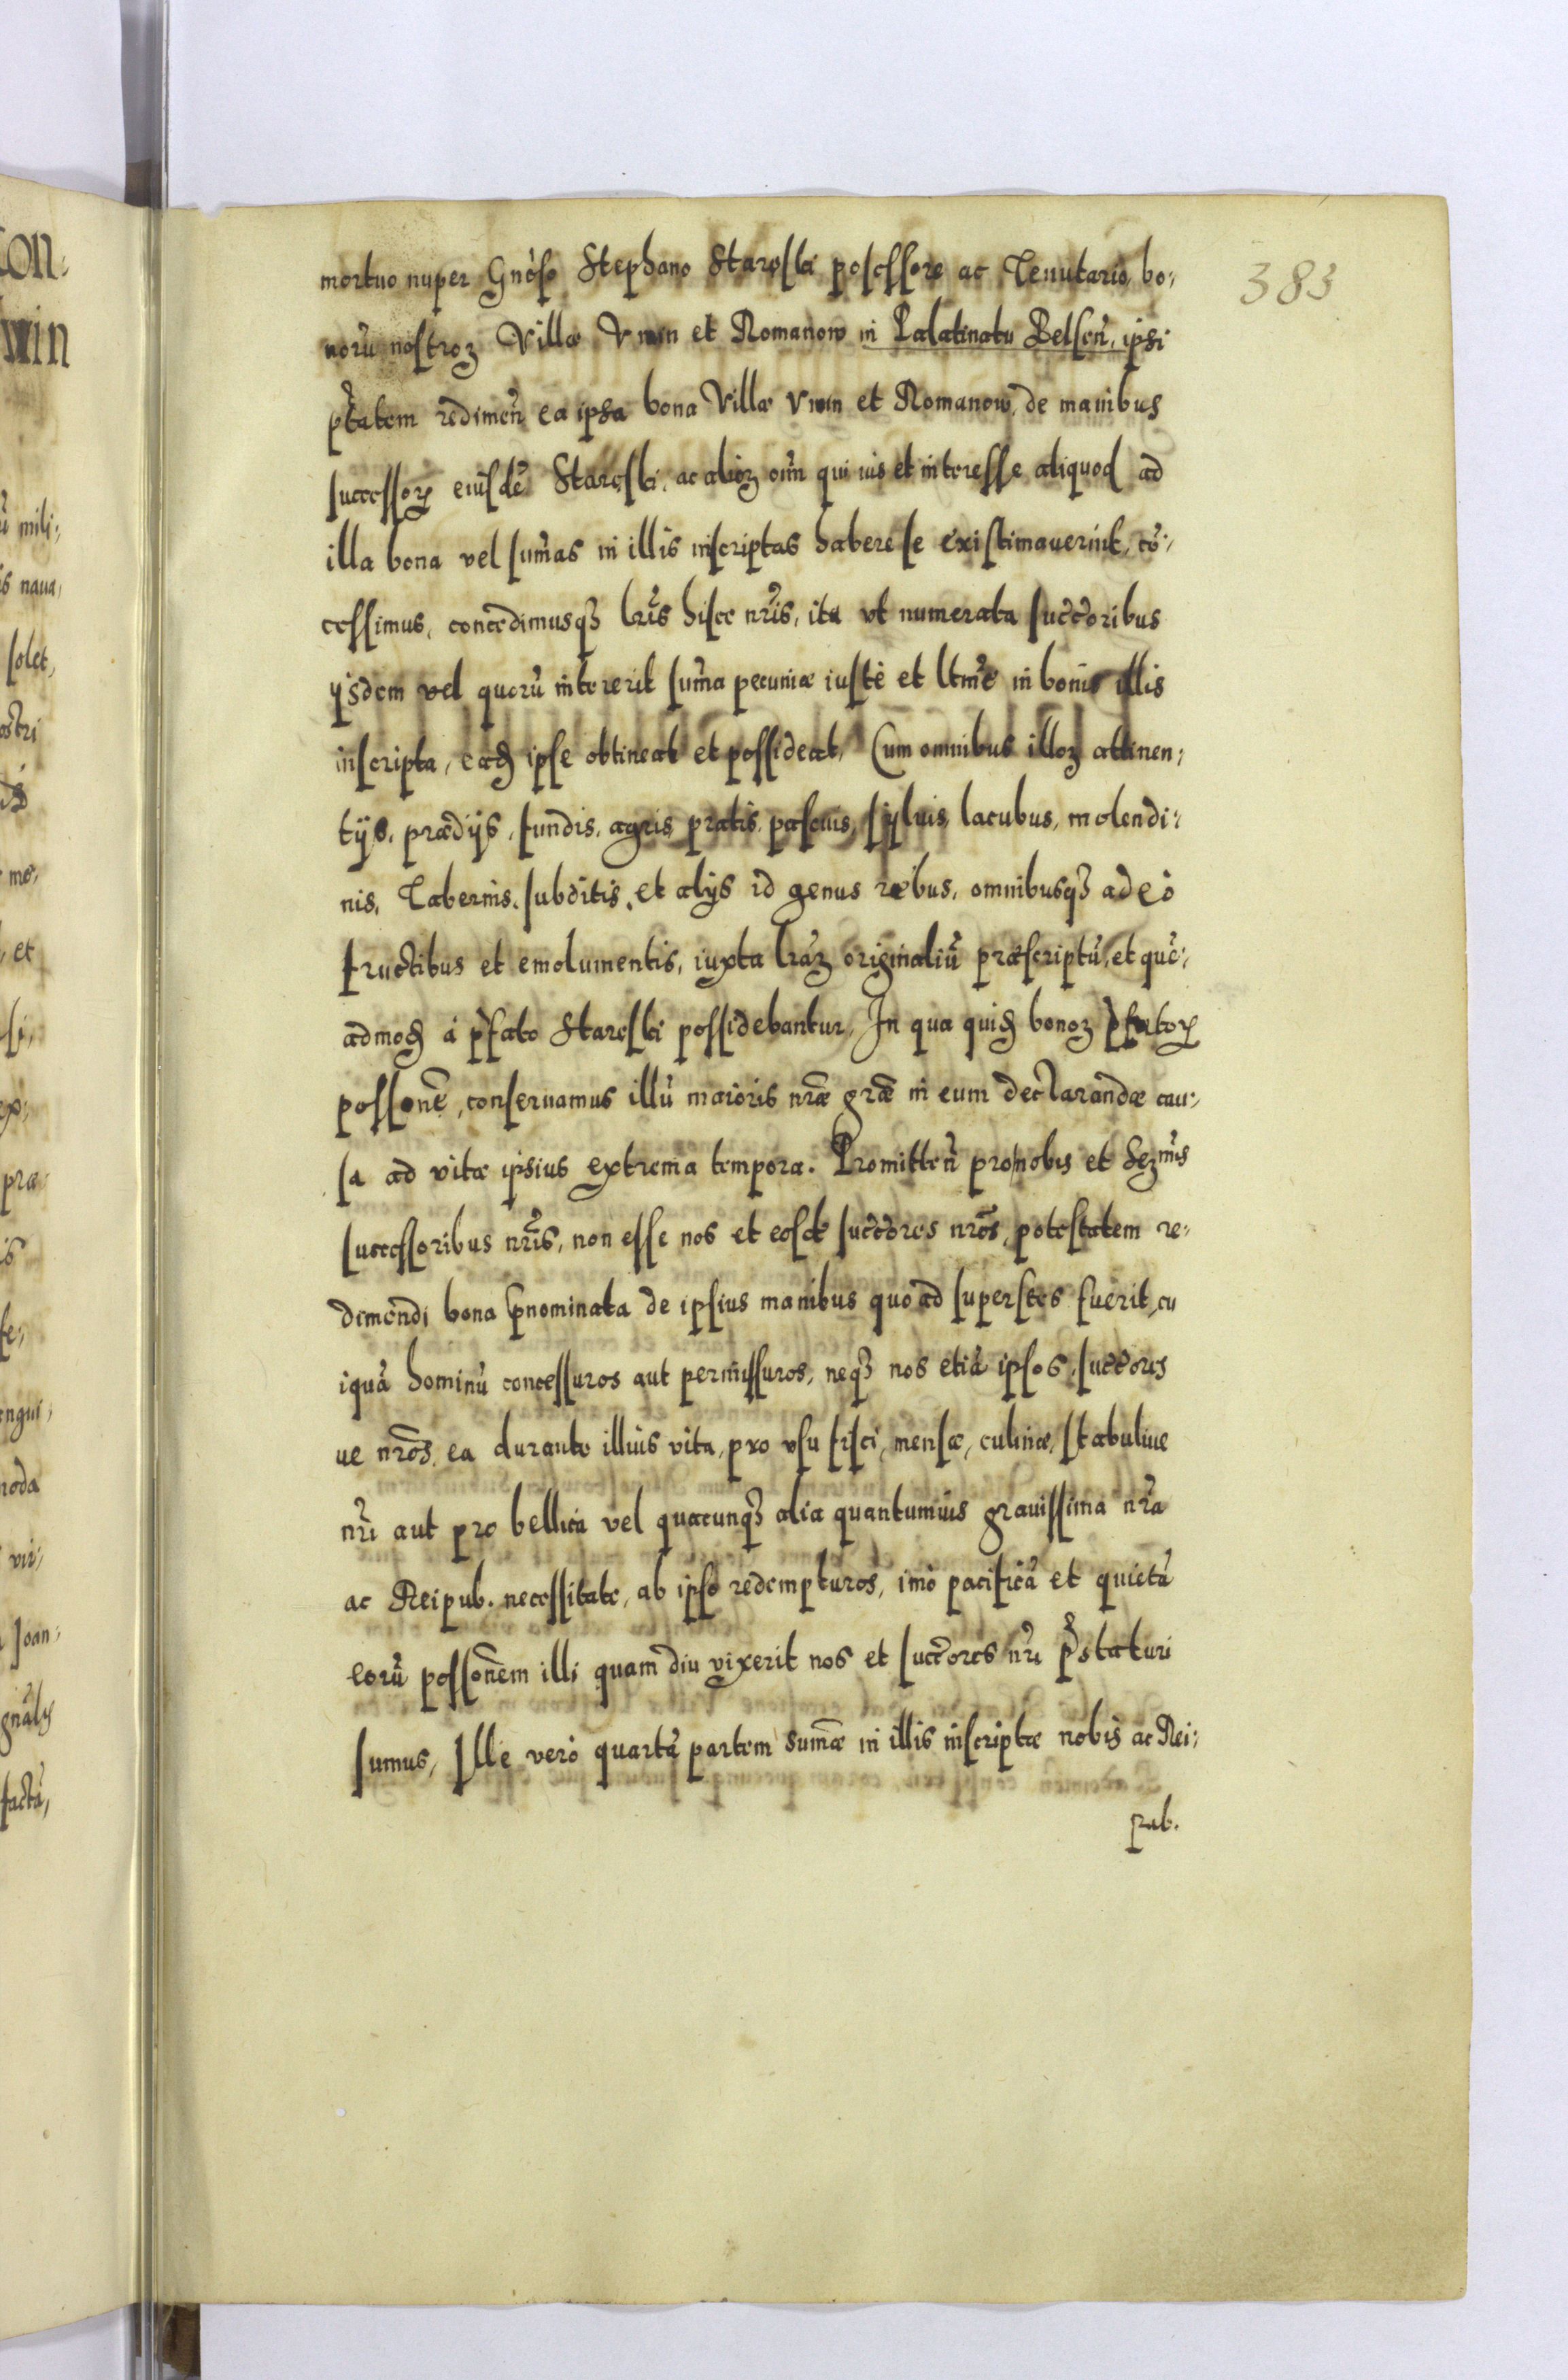 383
mortuo nuper Gnoso Stephano Stareski possessore ac Tenutario, bo:
norũ nostroꝝ Villæ Vwin et Romanow in Palatinatu Belseñ, ipsi
ptatem redimeñ ea ipsa bona Villæ Vwin et Romanow, de manibus
successorꝝ eiusdẽ Stareski, ac alioꝝ oĩm qui ius et interesse aliquod ad
illa bona vel sum̃as in illis inscriptas habere se existimauerint, cõ:
cessimus, concedimusqȝ lr̃is hisce nr̃is, ita vt numerata succoribus
ijsdem vel quorũ intererit sum̃a pecuniæ iustè et ltmẽ in bonis illis
inscripta, eadꝫ ipse obtineat et possideat, Cum omnibus illoꝝ attinen:
tijs, prædijs, fundis, agris, pratis, pascuis, syluis, lacubus, molendi:
nis, Tabernis, subditis, et alijs id genus rebus, omnibusqȝ adeò
fructibus et emolumentis, iuxta lr̃aꝝ originaliũ præscriptũ, et quẽ:
admodꝫ à pfato Stareski possidebantur, In qua quidꝫ bonoꝝ pfatorꝝ
possonẽ, conseruamus illũ maioris nr̃æ gr̃æ in eum declarandæ cau:
sa ad vitæ ipsius extrema tempora. Promitteñ pro nobis et Serm̃is
successoribus nr̃is, non esse nos et eosdẽ succores nr̃os, potestatem re:
dimendi bona pnominata de ipsius manibus quo ad superstes fuerit, cu
iquã hominũ concessuros aut permissuros, neqȝ nos etiã ipsos, succores
ue nr̃os, ea durante illius vita, pro vsu fisci, mensæ, culinæ, stabuliue
nr̃i aut pro bellica vel quacunqȝ alia quantumuis grauissima nr̃a
ac Reipub. necessitate, ab ipso redempturos, imò pacificã et quietã
eorũ possonem illi quam diu vixerit nos et succores nr̃i pstaturi
sumus, Ille verò quartã partem sum̃æ in illis inscriptæ nobis ac Rei:
pub.